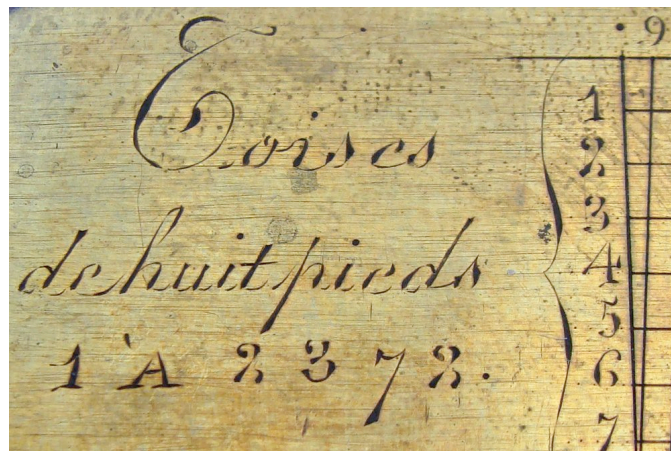 Toises
de huit pieds
1 À 2372.
9
1
2
3
4
5
6
7